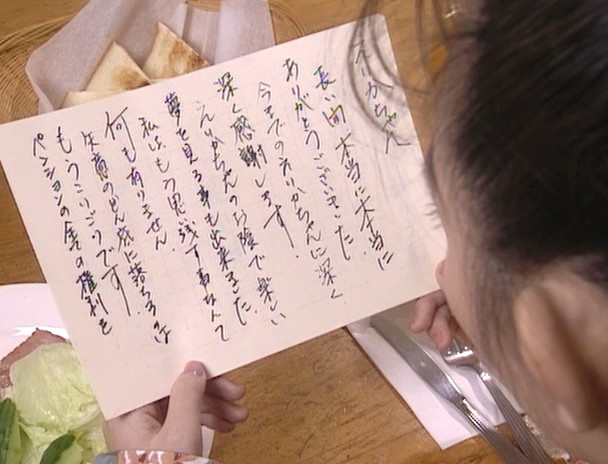 えりかちゃんへ
長い間 本当に本当に
ありがとうございました
今までのえりかちゃんに深く
深く感謝します。
えりかちゃんのお陰で楽しい
夢を見る事も出来ました。
私はもう思い残す事なんて
何も有りません
失意のどん底に落ちるのは
もうこりごりです
ペンションの全の権利を